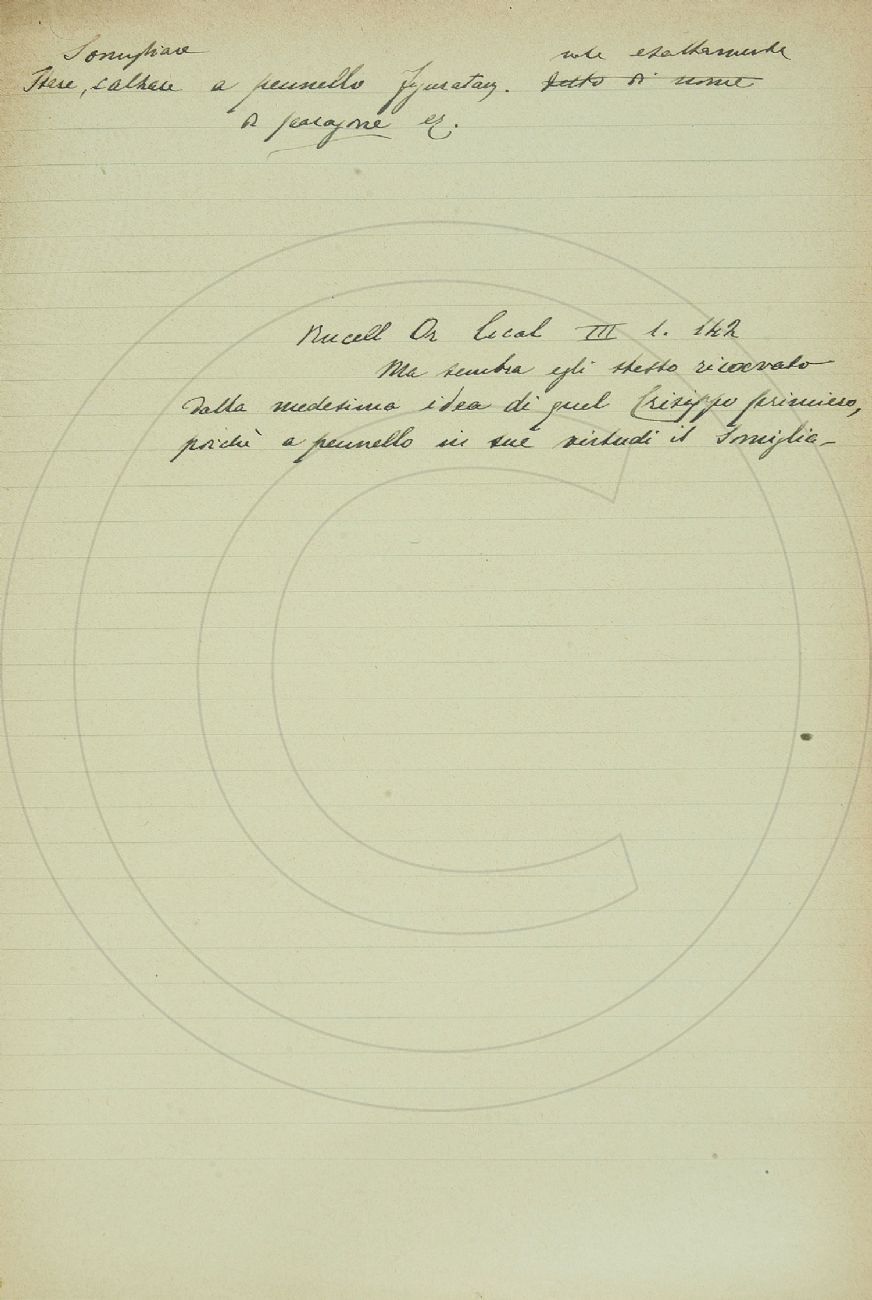 Somigliare
Stare, calzare a pennello figuratam. vale esattamente
detto di nome
di paragone ec.
Rucell Or Lical III 1. 142
Ma sembra egli stesso ricovato
dalla medesima idea di quel Crisippo primiero,
poichè a pennello in sue virtudi il somiglia-